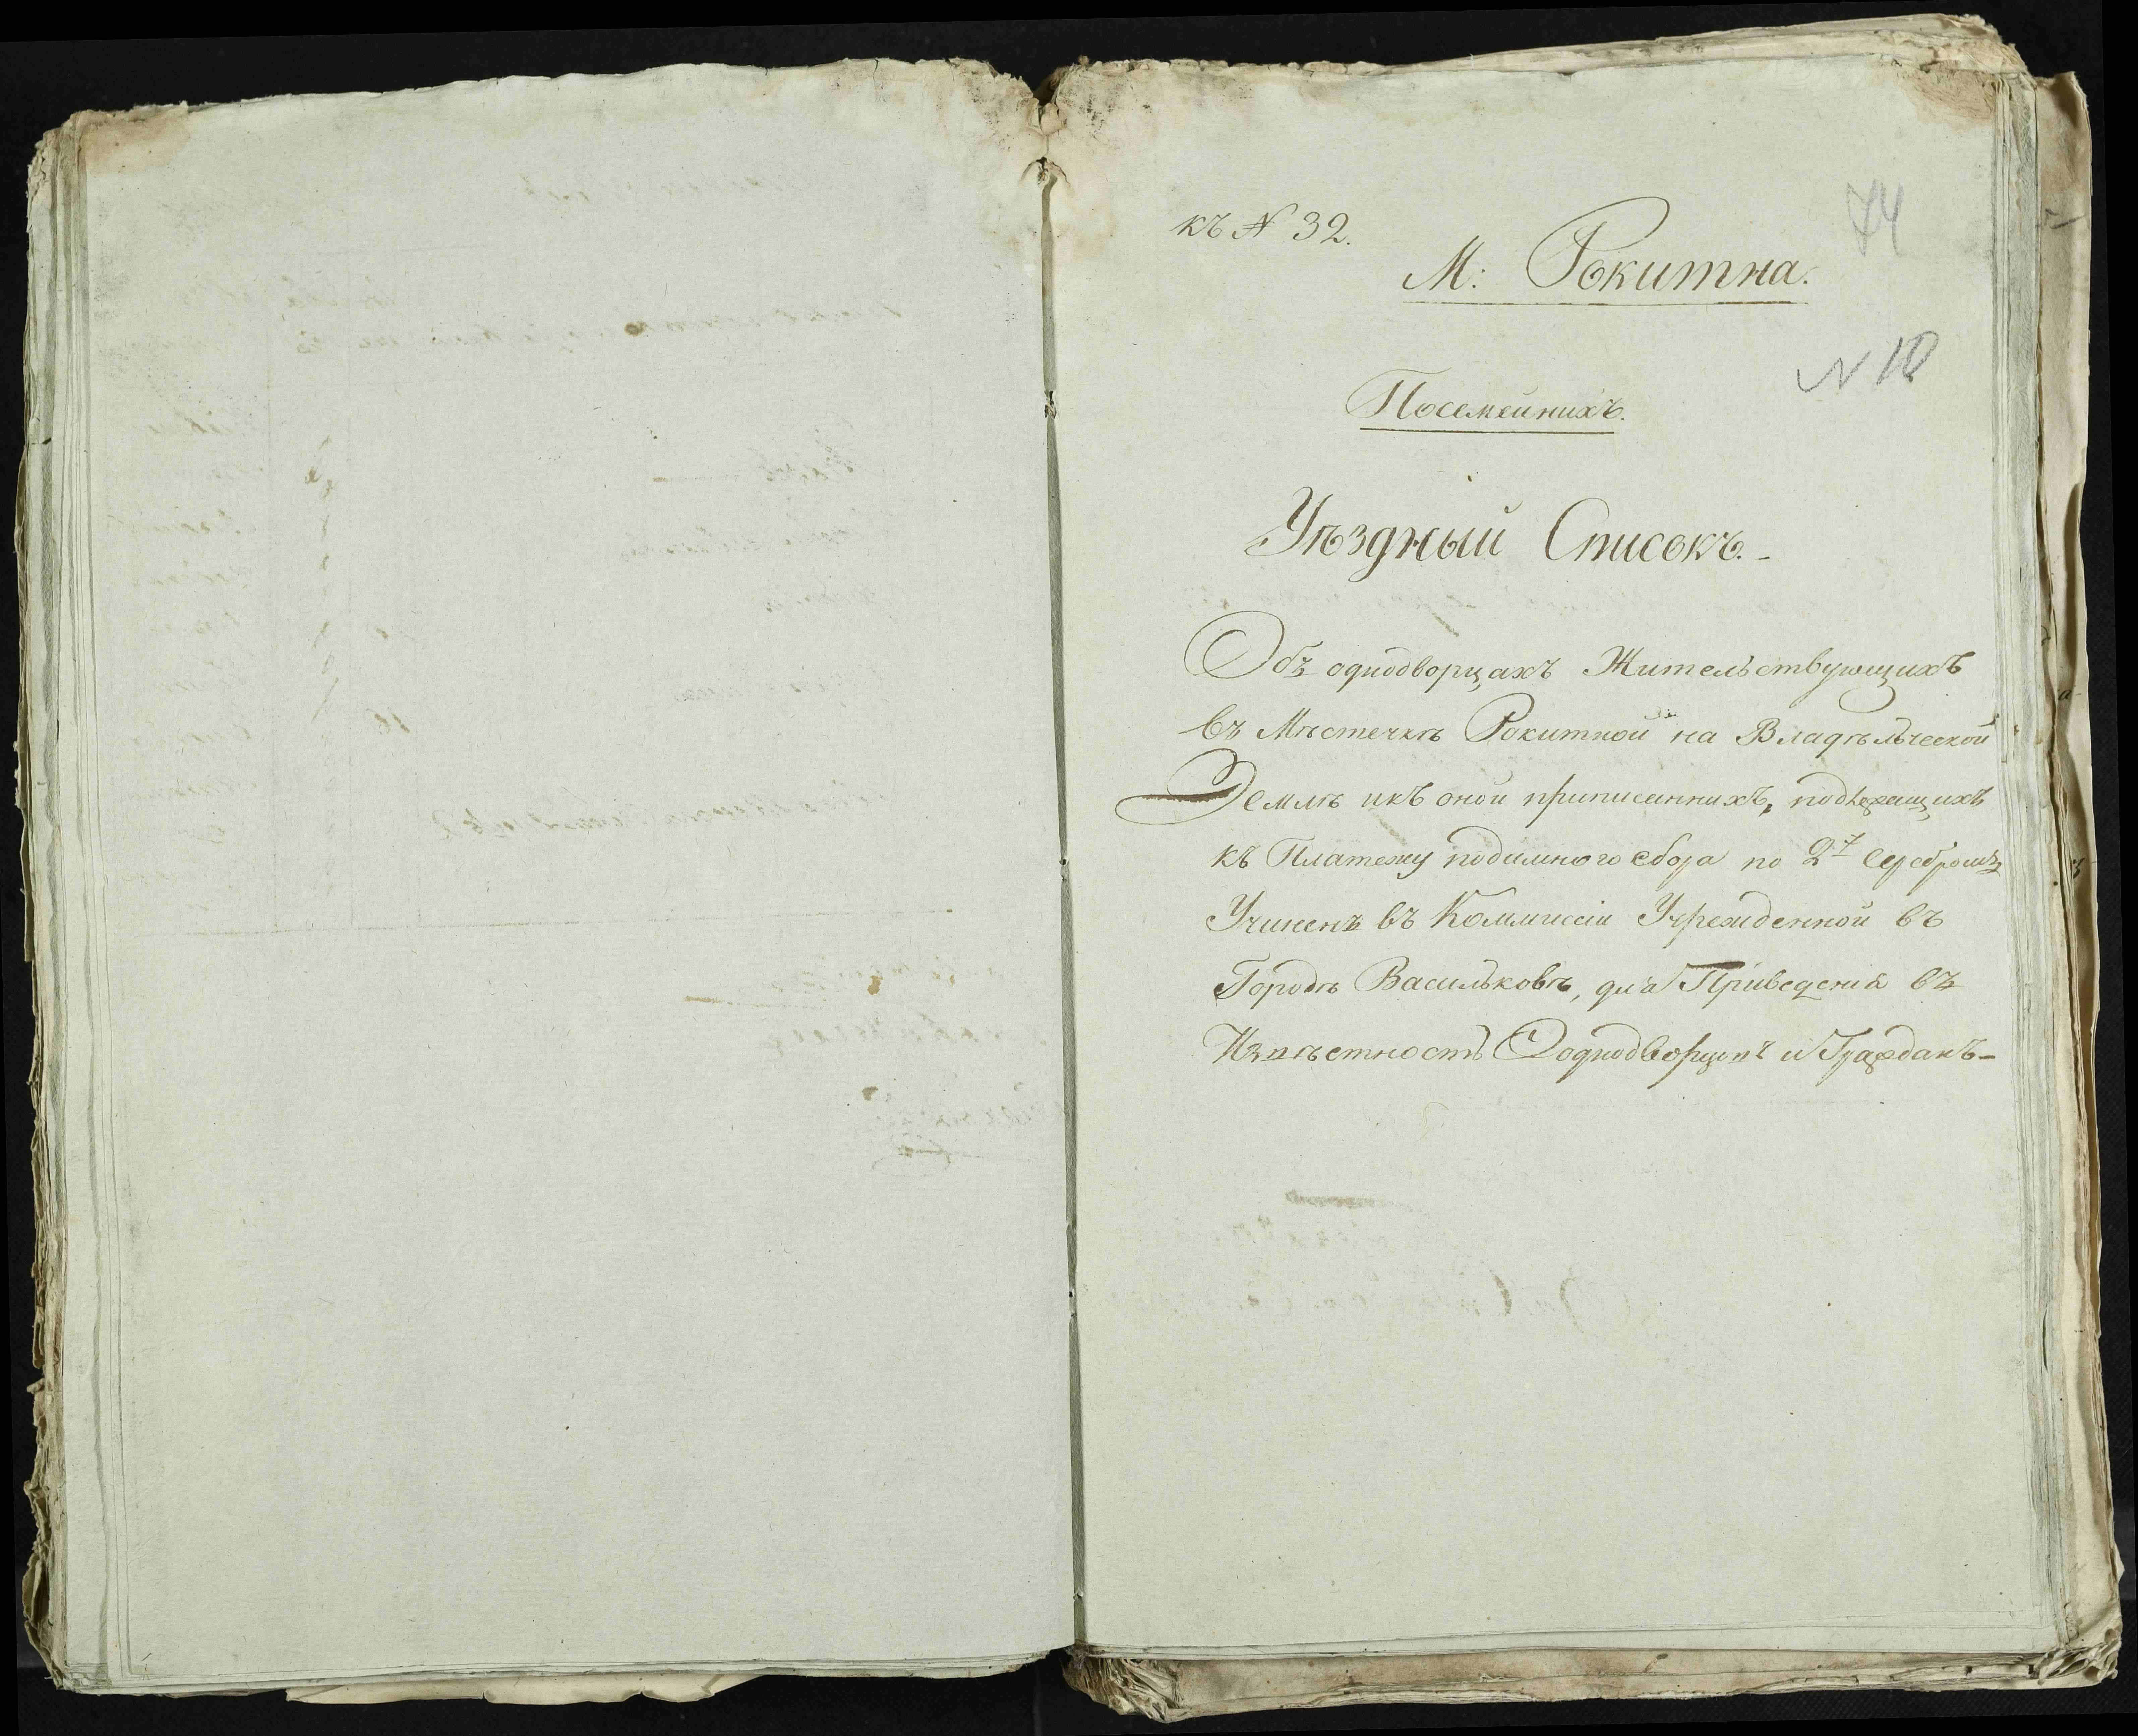 къ № 32.
74
М: Рокитна.
N 10
Посемейнихъ.
Уѣздный Списокъ.-
Объ однодворцахъ Жительствующихъ
въ Мѣстечкѣ Рокитной на Владѣльческой
Землѣ икъ оной приписаннихъ, подлежащихъ
къ Платежу подимного сбора по 2 Серебромъ
Учиненъ въ Коммиссіи Учрежденной въ
Городѣ Васильковѣ, для Приведения въ
Извѣстность Однодворцовъ и Граждан-